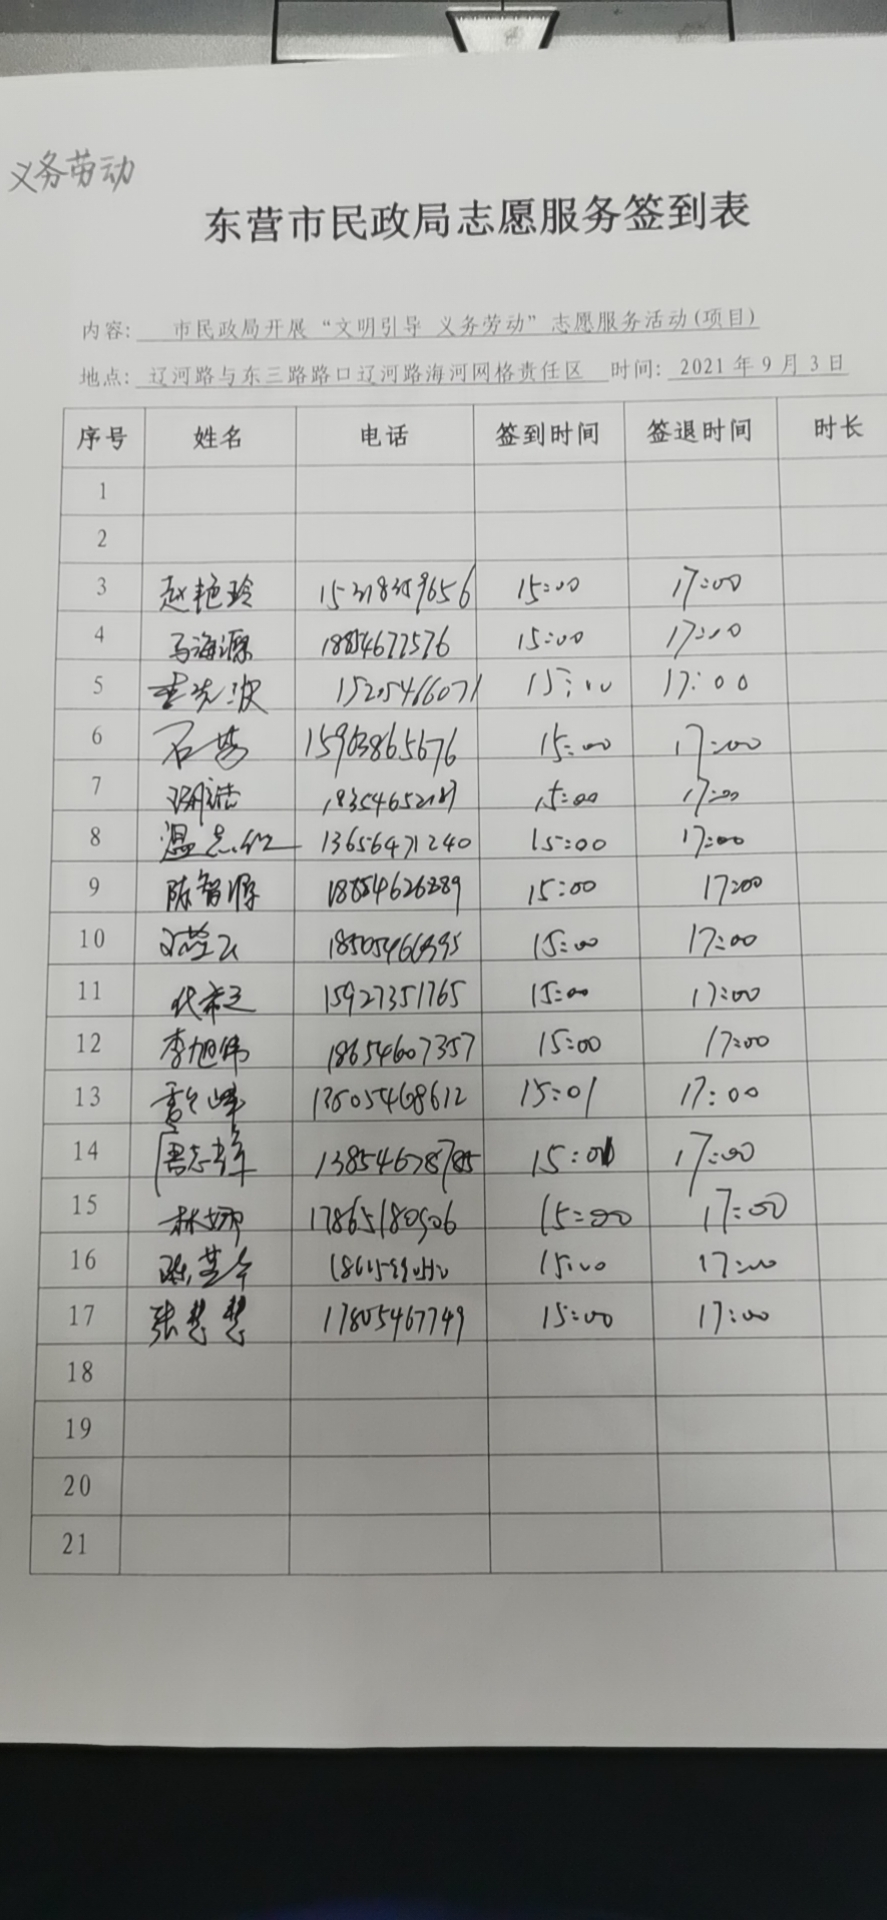 义务劳动
东营市民政局志愿服务签到表
内容: 市民政局开展“文明引导 义务劳动”志愿服务活动(项目)
地点: 辽河路与东三路路口辽河路海河网格责任区 时间: 2021年9月3日
序号 姓名 电话 签到时间 签退时间 时长
1
2
3 赵艳玲 15318359656 15:00 17:00
4 马海源 15:00 17:00
5 15205466071 15:00 17:00
6 石 15963865676 15:00 17:00
7 15:00 17:00
8 温志红 13656471240 15:00 17:00
9 陈智源 18854626389 15:00 17:00
10 15:00 17:00
11 15927351765 15:00 17:00
12 李旭伟 18654607357 15:00 17:00
13 15:01 17:00
14 17:00
15 林娜 17865180506 15:00 17:00
16 15:00 17:00
17 张慧慧 17805467749 15:00 17:00
18
19
20
21